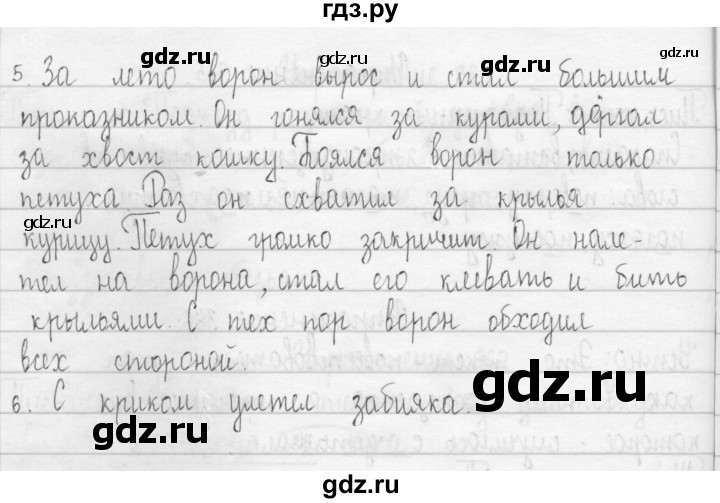 гдз.ру
5. За лето ворон вырос и стал большим
проказником. Он гонялся за курами, дёргал
за хвост кошку. Боялся ворон только
петуха. Раз он схватил за крылья
курицу. Петух громко закричит. Он нале-
тел на ворона, стал его клевать и бить
крыльями. С тех пор ворон обходил
всех стороной.
6. С криком улетел забияка.
gdz.ru
gdz.ru
gdz.ru
gdz.ru
gdz.ru
gdz.ru
gdz.ru
gdz.ru
gdz.ru
gdz.ru
gdz.ru
gdz.ru
gdz.ru